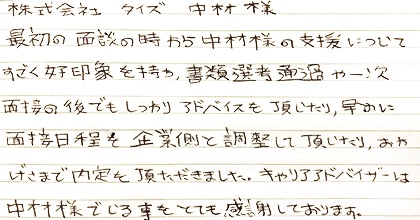 株式会社 タイズ 中村様
最初の面談の時から中村様の支援について
すごく好印象を持ち、書類選考通過や一次
面接の後でもしっかりアドバイスを頂いたり、早めに
面接日程を企業側と調整して頂いたり、おか
げさまで内定を頂ただきました。キャリアアドバイザーは
中村様でじる事をとても感謝しております。